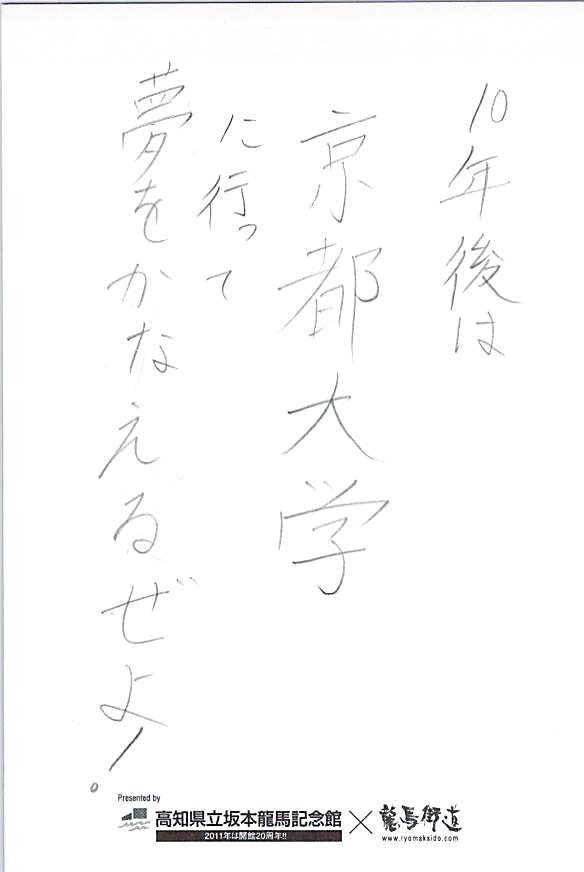 10年後は
京都大学
に行って
夢をかなえるぜよ!
Presented by
高知県立坂本龍馬記念館×龍馬街道
2011年は開館20周年!!
www.ryomakaido.com